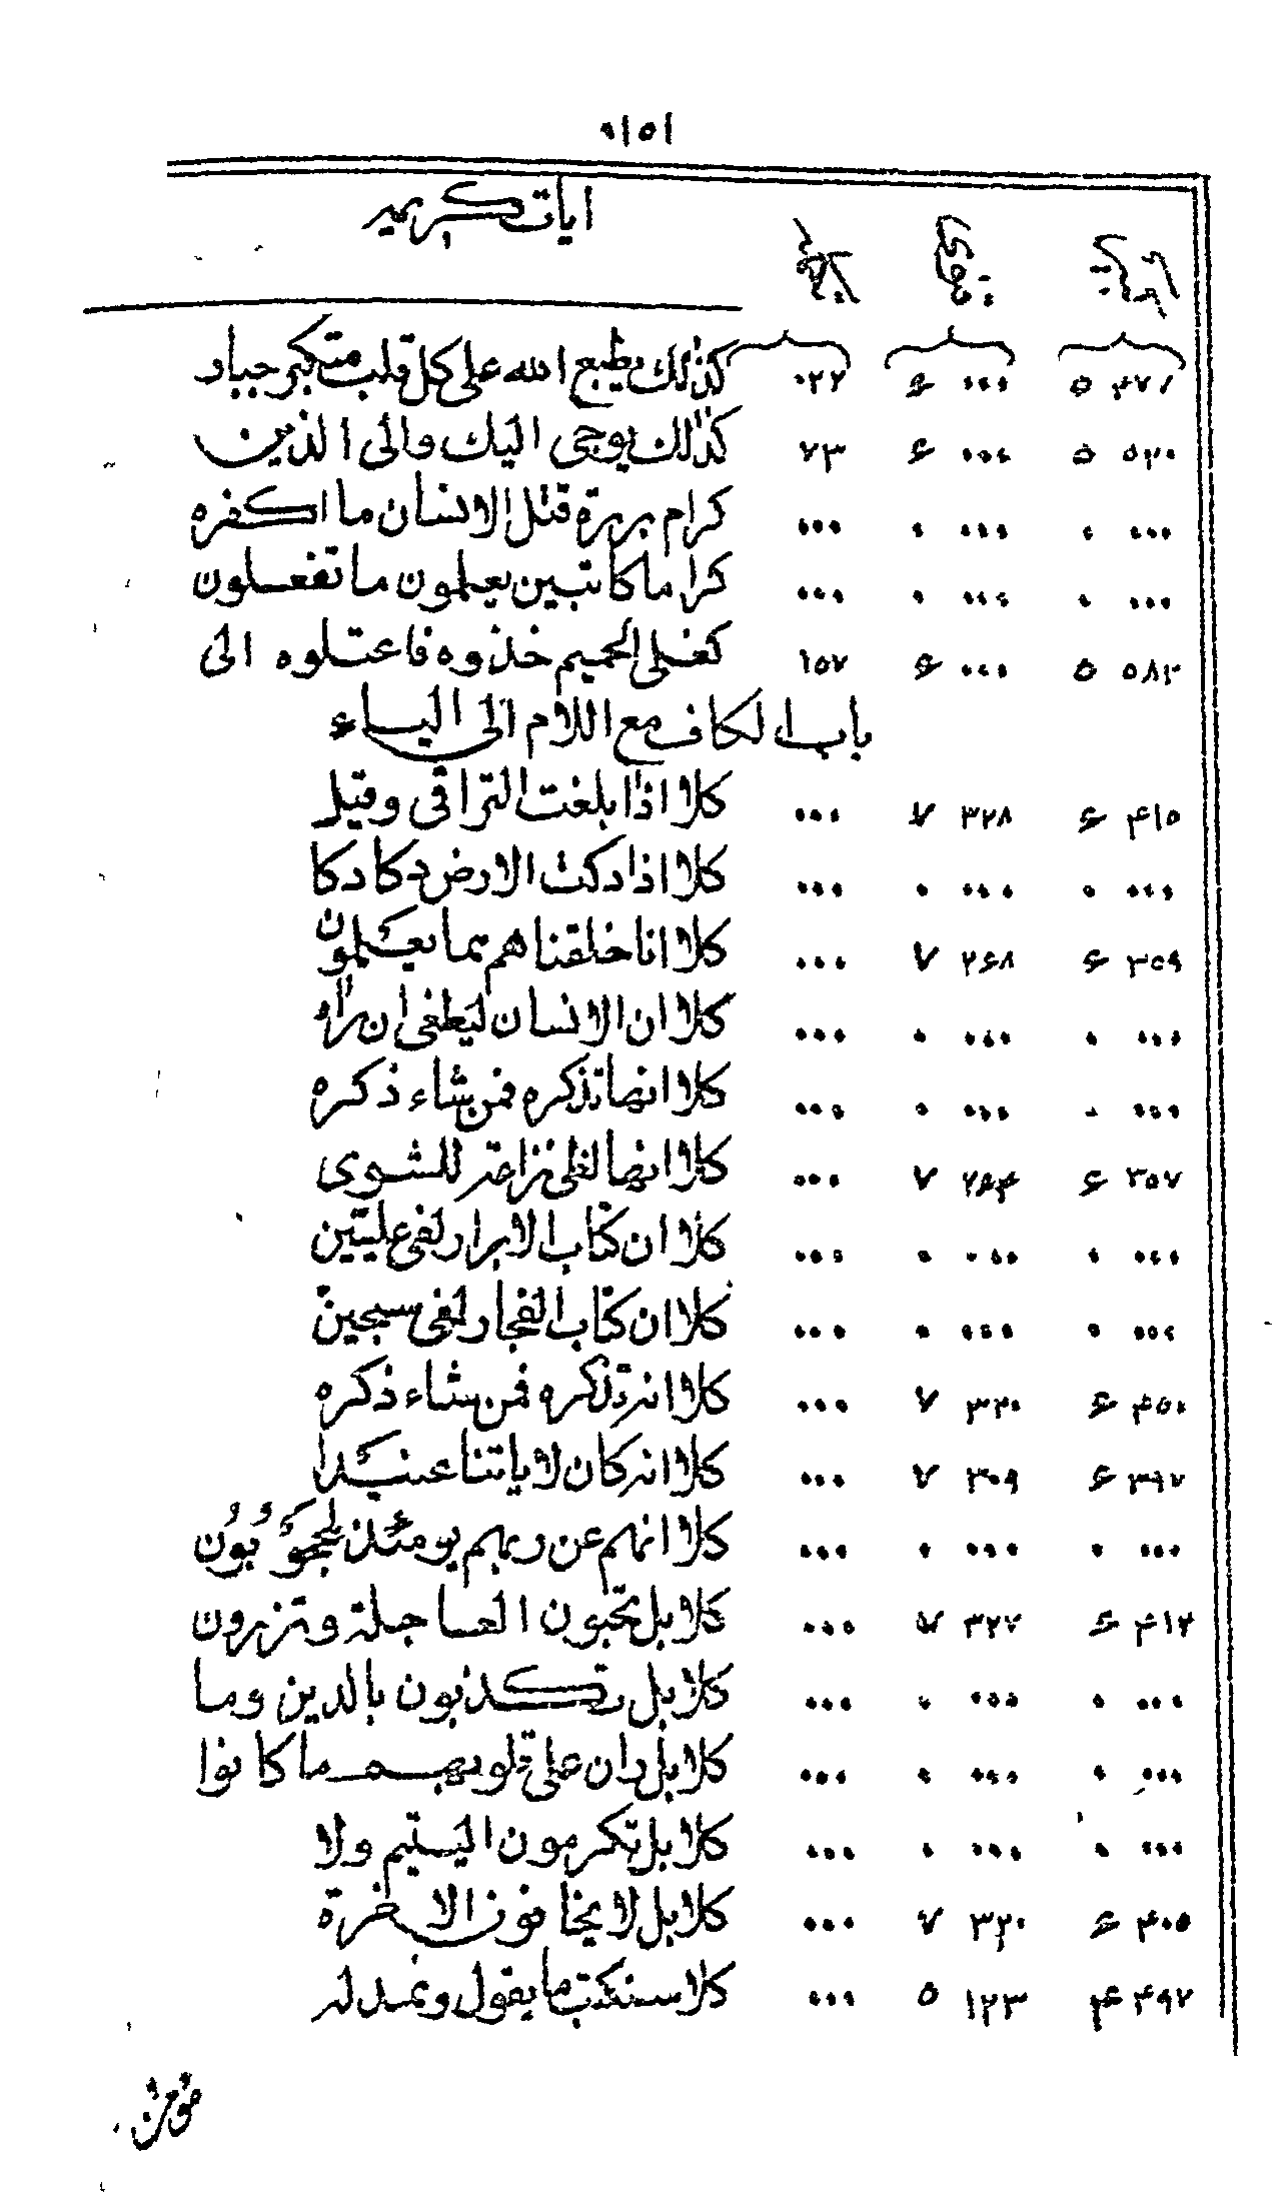 ایات کریمه
۵ ۴۷۱ ۶ ۰۰۰ ۰۲۲ کذلك یطبع الله علی کل قلب متکبر جبار
۵ ۵۲۰ ۶ ۰۰۰ ۷۳ کذلك یوحی الیك والی الذین
۰ ۰۰۰ ۰ ۰۰۰ ۰۰۰ کرام بررة قتل الانسان ما اکفره
۰ ۰۰۰ ۰ ۰۰۰ ۰۰۰ کراما کاتبین یعلمون ما تفعلون
۵ ۵۸۲ ۶ ۰۰۰ ۱۵۷ کغلی الحمیم خذوه فاعتلوه الی
باب الکاف مع اللام الی الیاء
۶ ۴۱۵ ۷ ۳۲۸ ۰۰۰ کلا اذا بلغت التراقی وقیل
۰ ۰۰۰ ۰ ۰۰۰ ۰۰۰ کلا اذا دکت الارض دکا دکا
۶ ۳۵۹ ۷ ۲۶۸ ۰۰۰ کلا انا خلقناهم مما یعلمون
۰ ۰۰۰ ۰ ۰۰۰ ۰۰۰ کلا ان الانسان لیطغی ان راه
۰ ۰۰۰ ۰ ۰۰۰ ۰۰۰ کلا انها تذکره فمن شاء ذکره
۶ ۳۵۷ ۷ ۲۶۴ ۰۰۰ کلا انها لظی نزاعة للشوی
۰ ۰۰۰ ۰ ۰۰۰ ۰۰۰ کلا ان کتاب الابرار لفی علیین
۰ ۰۰۰ ۰ ۰۰۰ ۰۰۰ کلا ان کتاب الفجار لفی سجین
۶ ۴۵۰ ۷ ۳۲۰ ۰۰۰ کلا انه تذکره فمن شاء ذکره
۶ ۳۹۷ ۷ ۳۰۹ ۰۰۰ کلا انه کان لایاتنا عنیدا
۰ ۰۰۰ ۰ ۰۰۰ ۰۰۰ کلا انهم عن ربهم یومئذ لمحجوبون
۶ ۴۱۲ ۷ ۳۲۷ ۰۰۰ کلا بل تحبون العاجلة وتذرون
۰ ۰۰۰ ۰ ۰۰۰ ۰۰۰ کلا بل تکذبون بالدین وما
۰ ۰۰۰ ۰ ۰۰۰ ۰۰۰ کلا بل ران علی قلوبهم ما کانوا
۰ ۰۰۰ ۰ ۰۰۰ ۰۰۰ کلا بل تکرمون الیتیم ولا
۶ ۴۰۵ ۷ ۳۲۰ ۰۰۰ کلا بل لا یخافون الاخرة
۴ ۴۹۲ ۵ ۱۲۳ ۰۰۰ کلا سنکتب ما یقول ونمد له